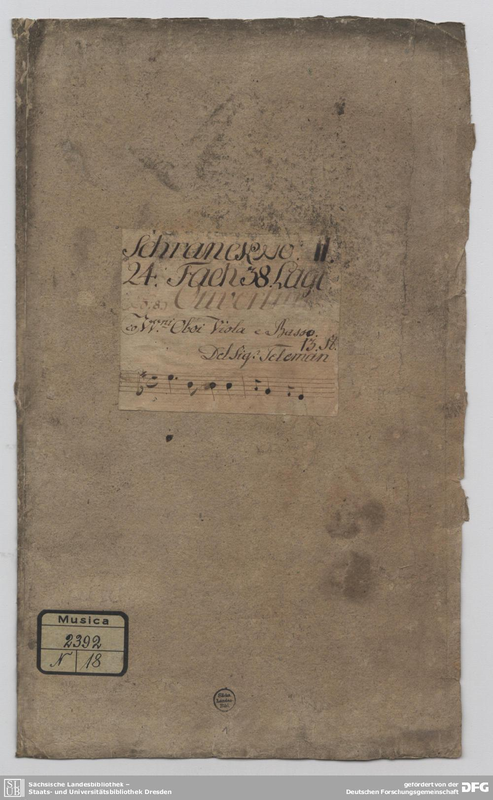 Schranck No: II.
24. Fach 38. Lage
Ouverture
(No. 8.)
co VV.ni Oboi Viola e Basso.
13. St.
Del Sig: Teleman
Musica
2392
N 18
Sächs.
Landes-
Bibl.
Sächsische Landesbibliothek –
Staats- und Universitätsbibliothek Dresden
gefördert von der
Deutschen Forschungsgemeinschaft
DFG
SLUB